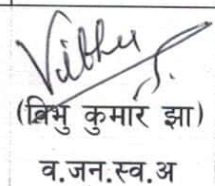 Vibhu J.
(विभु कुमार झा)
व.जन.स्व.अ